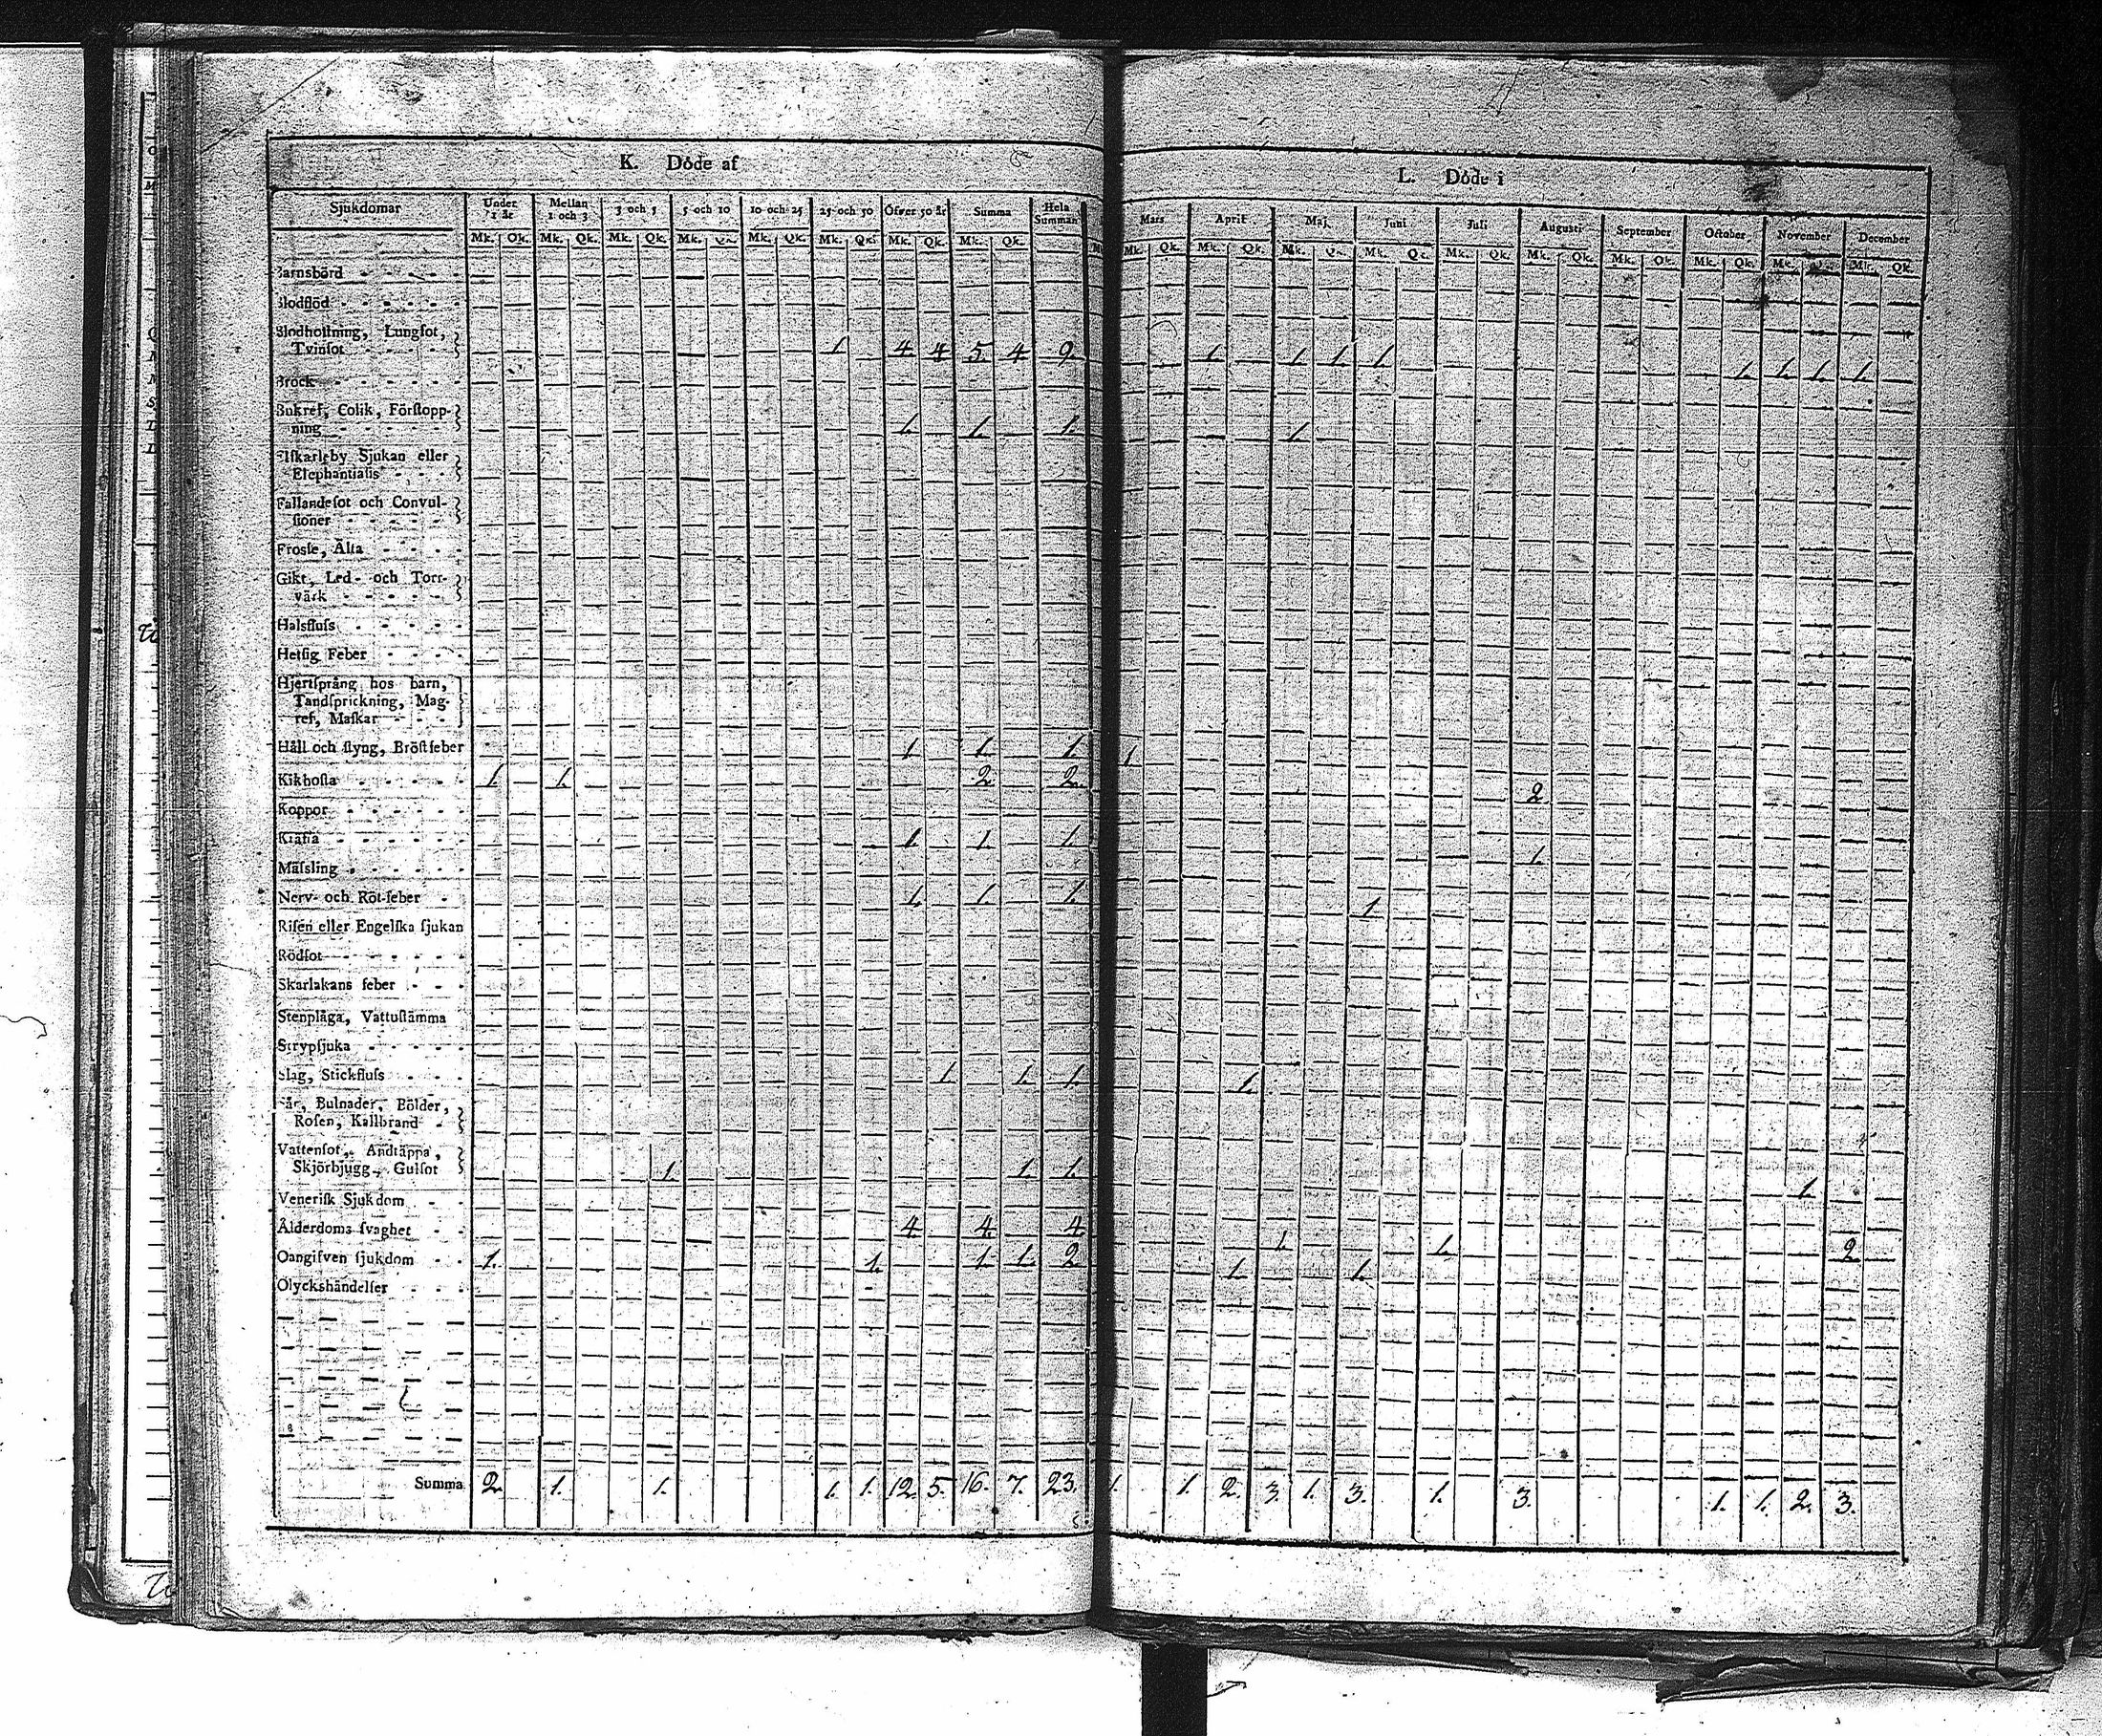 K. Döde af
Sjukdomar Under 1 år Mellan 1 och 3 3 och 5 5 och 10 10 och 25 25 och 50 Öfver 50 år Summa Hela Summan
Mk. Qk. Mk. Qk. Mk. Qk. Mk. Qk. Mk. Qk. Mk. Qk. Mk. Qk. Mk. Qk.
Barnsbörd
Blodflöd
Blodhostning, Lungsot,
Tvinsot 1. 4 4 5. 4 9.
Bråck
Bukref, Colik, Förstopp-
ning 1. 1. 1.
Elskarleby Sjukan eller
Elephantiasis
Fallandesot och Convul-
sioner
Frossa, Älta
Gikt, Led- och Torr-
värk
Halsfluss
Hetsig Feber
Hjertsprång hos barn,
Tandsprickning, Mag-
ref, Maskar
Håll och styng, Bröstfeber 1. 1. 1.
Kikhosta 1. 1. 2. 2.
Koppor
Kräfta 1. 1. 1.
Mässling
Nerv- och Röt-feber 1. 1. 1.
Risen eller Engelska sjukan
Rödsot
Skarlakans feber
Stenplåga, Vattustämma
Strypsjuka
Slag, Stickfluss 1. 1. 1.
Sår, Bulnader, Bölder,
Rosen, Kallbrand
Vattensot, Andtäppa,
Skjörbjugg, Gulsot 1. 1. 1.
Venerisk Sjukdom
Ålderdoms svaghet 4. 4. 4.
Oangifven sjukdom 1. 1. 1. 1. 2.
Olyckshändelser
Summa 2. 1. 1. 1. 1. 12. 5. 16. 7. 23.
L. Döde i
Mars April Maj Juni Juli Augusti September October November December
Mk. Qk. Mk. Qk. Mk. Qk. Mk. Qk. Mk. Qk. Mk. Qk. Mk. Qk. Mk. Qk. Mk. Qk. Mk. Qk.
1. 1. 1. 1. 1. 1. 1. 1.
1.
1.
2.
1.
1.
1.
1.
1. 1. 2.
1. 1.
1. 1. 2. 3. 1. 3. 1. 3. 1. 1. 2. 3.